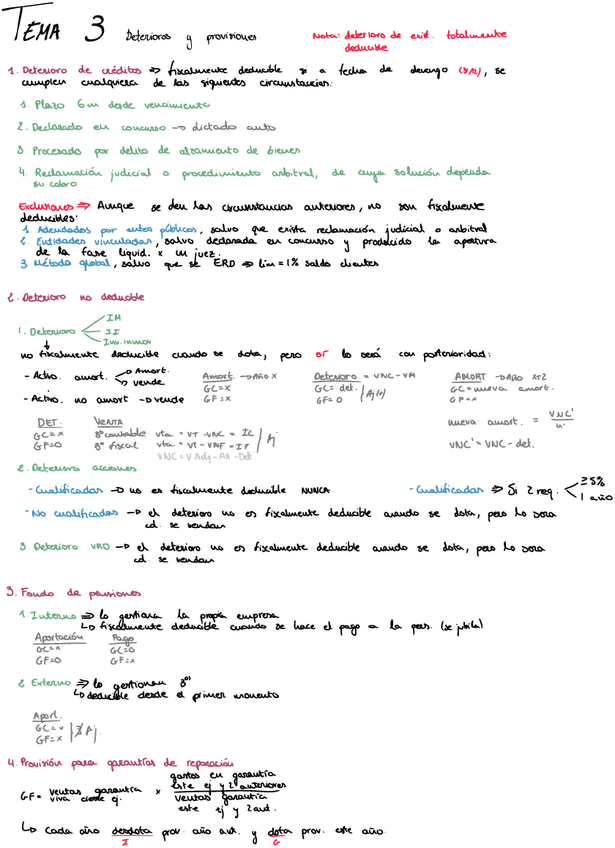 TEMA 3 Deterioros y provisiones
Nota: deterioro de exist. totalmente
deducible
1. Deterioro de créditos => fiscalmente deducible si a fecha de devengo (31/12), se
cumplen cualquiera de las siguientes circunstancias:
1. Plazo 6m desde vencimiento
2. Declarado en concurso -> dictado auto
3. Procesado por delito de alzamiento de bienes
4. Reclamación judicial o procedimiento arbitral, de cuya solución dependa
su cobro
Exclusiones => Aunque se den las circunstancias anteriores, no son fiscalmente
deducibles:
1 Adeudados por entes públicos, salvo que exista reclamación judicial o arbitral
2. Entidades vinculadas, salvo declarada en concurso y producido la apertura
de la fase liquid. x un juez.
3 Método global, salvo que se ERD => lim = 1% saldo clientes
2. Deterioro no deducible
1. Deterioro IM
II
Inv. inmov
no fiscalmente deducible cuando se dota, pero sí lo será con posterioridad:
- Activo. amort. -> Amort.
-> vende
- Activo. no amort -> vende
Amort. -> Año x
GC=x
GF=x
Deterioro = VNC - VM
GC= det.
GF= 0
Aj(+)
AMORT -> Año x+2
GC= nueva amort.
GF=x
nueva amort. = VNC'
n'
VNC' = VNC - det.
DET.
GC=x
GF=0
VENTA
Bº contable vta = VT - VNC = IC
Bº fiscal vta = VT - VNF = IF
Aj
VNC = VAdq - AA - Det
2. Deterioro acciones
- Cualificadas -> no es fiscalmente deducible NUNCA
- Cualificadas => Si 2 req. ≥5%
1 año
- No cualificadas -> el deterioro no es fiscalmente deducible cuando se dota, pero lo será
cd. se vendan
3. Deterioro VRD -> el deterioro no es fiscalmente deducible cuando se dota, pero lo será
cd. se vendan
3. Fondo de pensiones
1. Interno => lo gestiona la propia empresa
-> fiscalmente deducible cuando se hace el pago a la pers. (se jubila)
Aportación
GC=x
GF=0
Pago
GC=0
GF=x
2 Externo => lo gestionan 3os
-> deducible desde el primer momento
Aport.
GC=x
GF=x
∄ Aj.
4. Provisión para garantías de reparación
GF= ventas garantía
viva cierre ej. x
gastos en garantía
este ej y 2 anteriores
ventas garantía
este ej y 2 ant.
-> Cada año desdota prov. año ant. y dota prov. este año.
I G